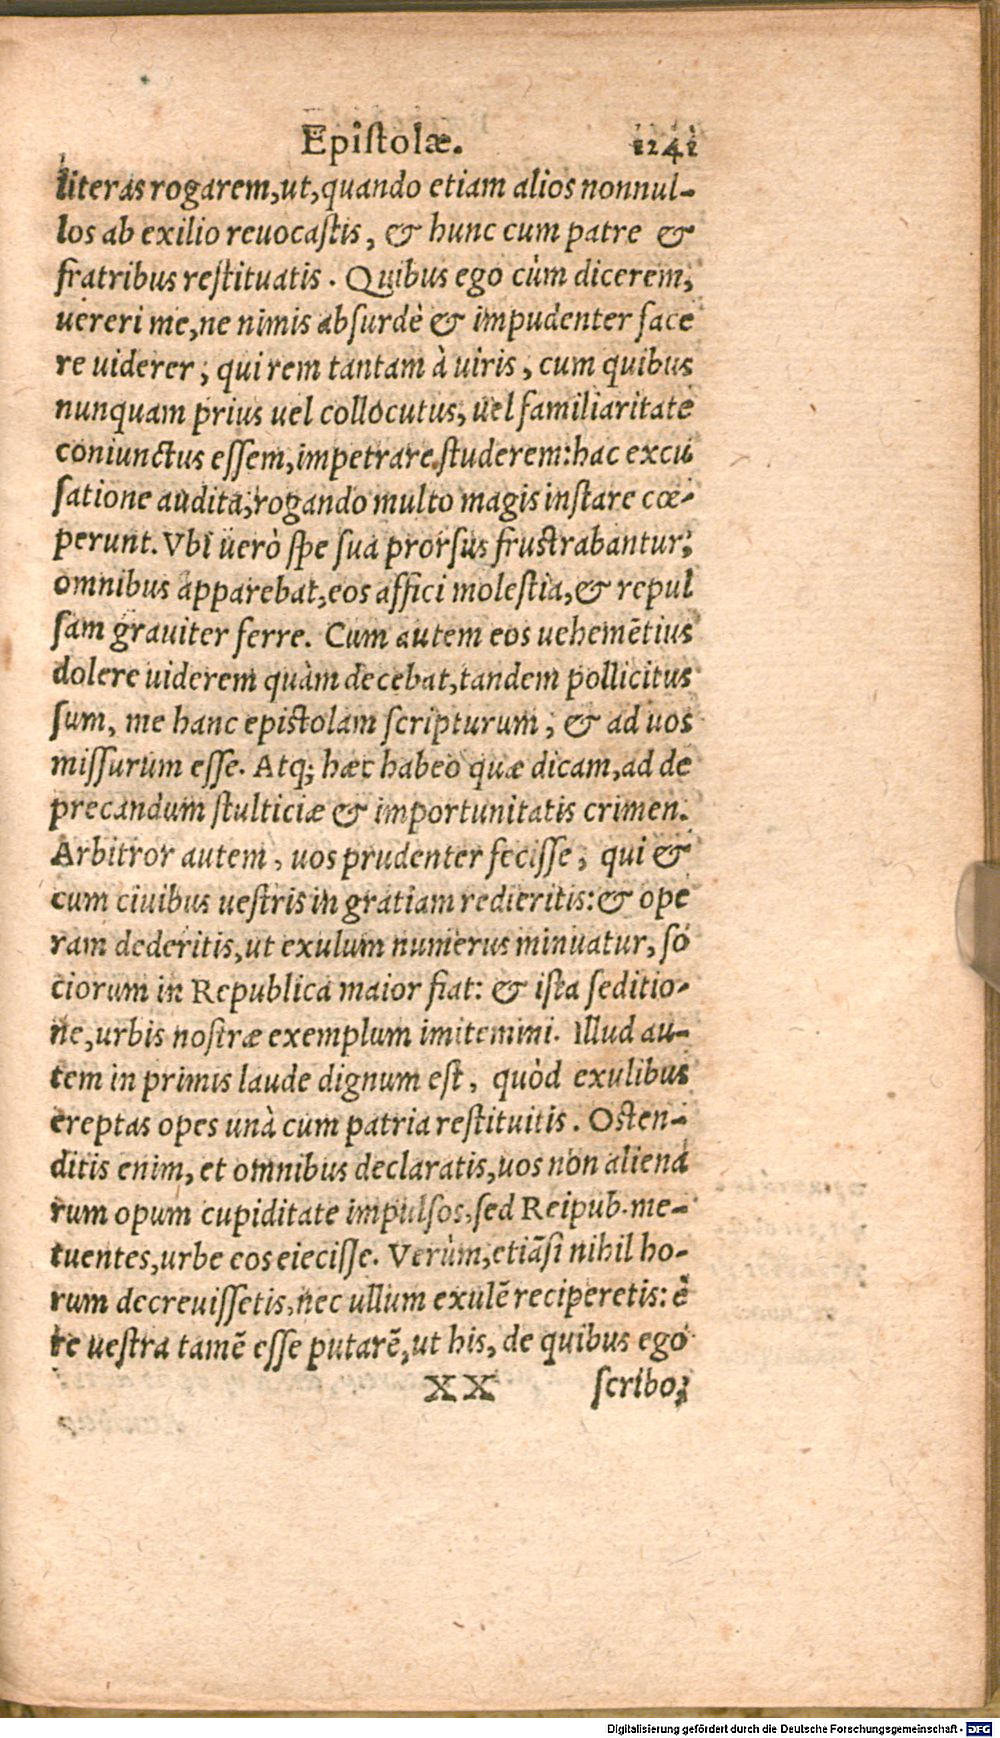 Epiſtolæ. 1241
literas rogarem, ut, quando etiam alios nonnul-
los ab exilio reuocaſtis, & hunc cum patre &
fratribus reſtituatis. Quibus ego cùm dicerem,
uereri me, ne nimis abſurdè & impudenter face
re uiderer, qui rem tantam à uiris, cum quibus
nunquam prius uel collocutus, uel familiaritate
coniunctus eſſem, impetrare ſtuderem: hac excu
ſatione audita, rogando multo magis inſtare cœ-
perunt. Vbi uerò ſpe ſua prorſus fruſtrabantur,
omnibus apparebat, eos affici moleſtia, & repul
ſam grauiter ferre. Cum autem eos uehemētius
dolere uiderem quàm decebat, tandem pollicitus
ſum, me hanc epiſtolam ſcripturum, & ad uos
miſſurum eſſe. Atq; hæc habeo quæ dicam, ad de
precandum ſtulticiæ & importunitatis crimen.
Arbitror autem, uos prudenter feciſſe, qui &
cum ciuibus ueſtris in gratiam redieritis: & ope
ram dederitis, ut exulum numerus minuatur, ſo
ciorum in Republica maior fiat: & iſta ſeditio-
ne, urbis noſtræ exemplum imitemini. Illud au-
tem in primis laude dignum eſt, quòd exulibus
ereptas opes unà cum patria reſtituitis. Oſten-
ditis enim, et omnibus declaratis, uos non aliena
rum opum cupiditate impulſos, ſed Reipub. me-
tuentes, urbe eos eieciſſe. Verùm, etiāſi nihil ho-
rum decreuiſſetis, nec ullum exulē reciperetis: è
re ueſtra tamē eſſe putarē, ut his, de quibus ego
XX ſcribo,
Digitalisierung gefördert durch die Deutsche Forschungsgemeinschaft - DFG